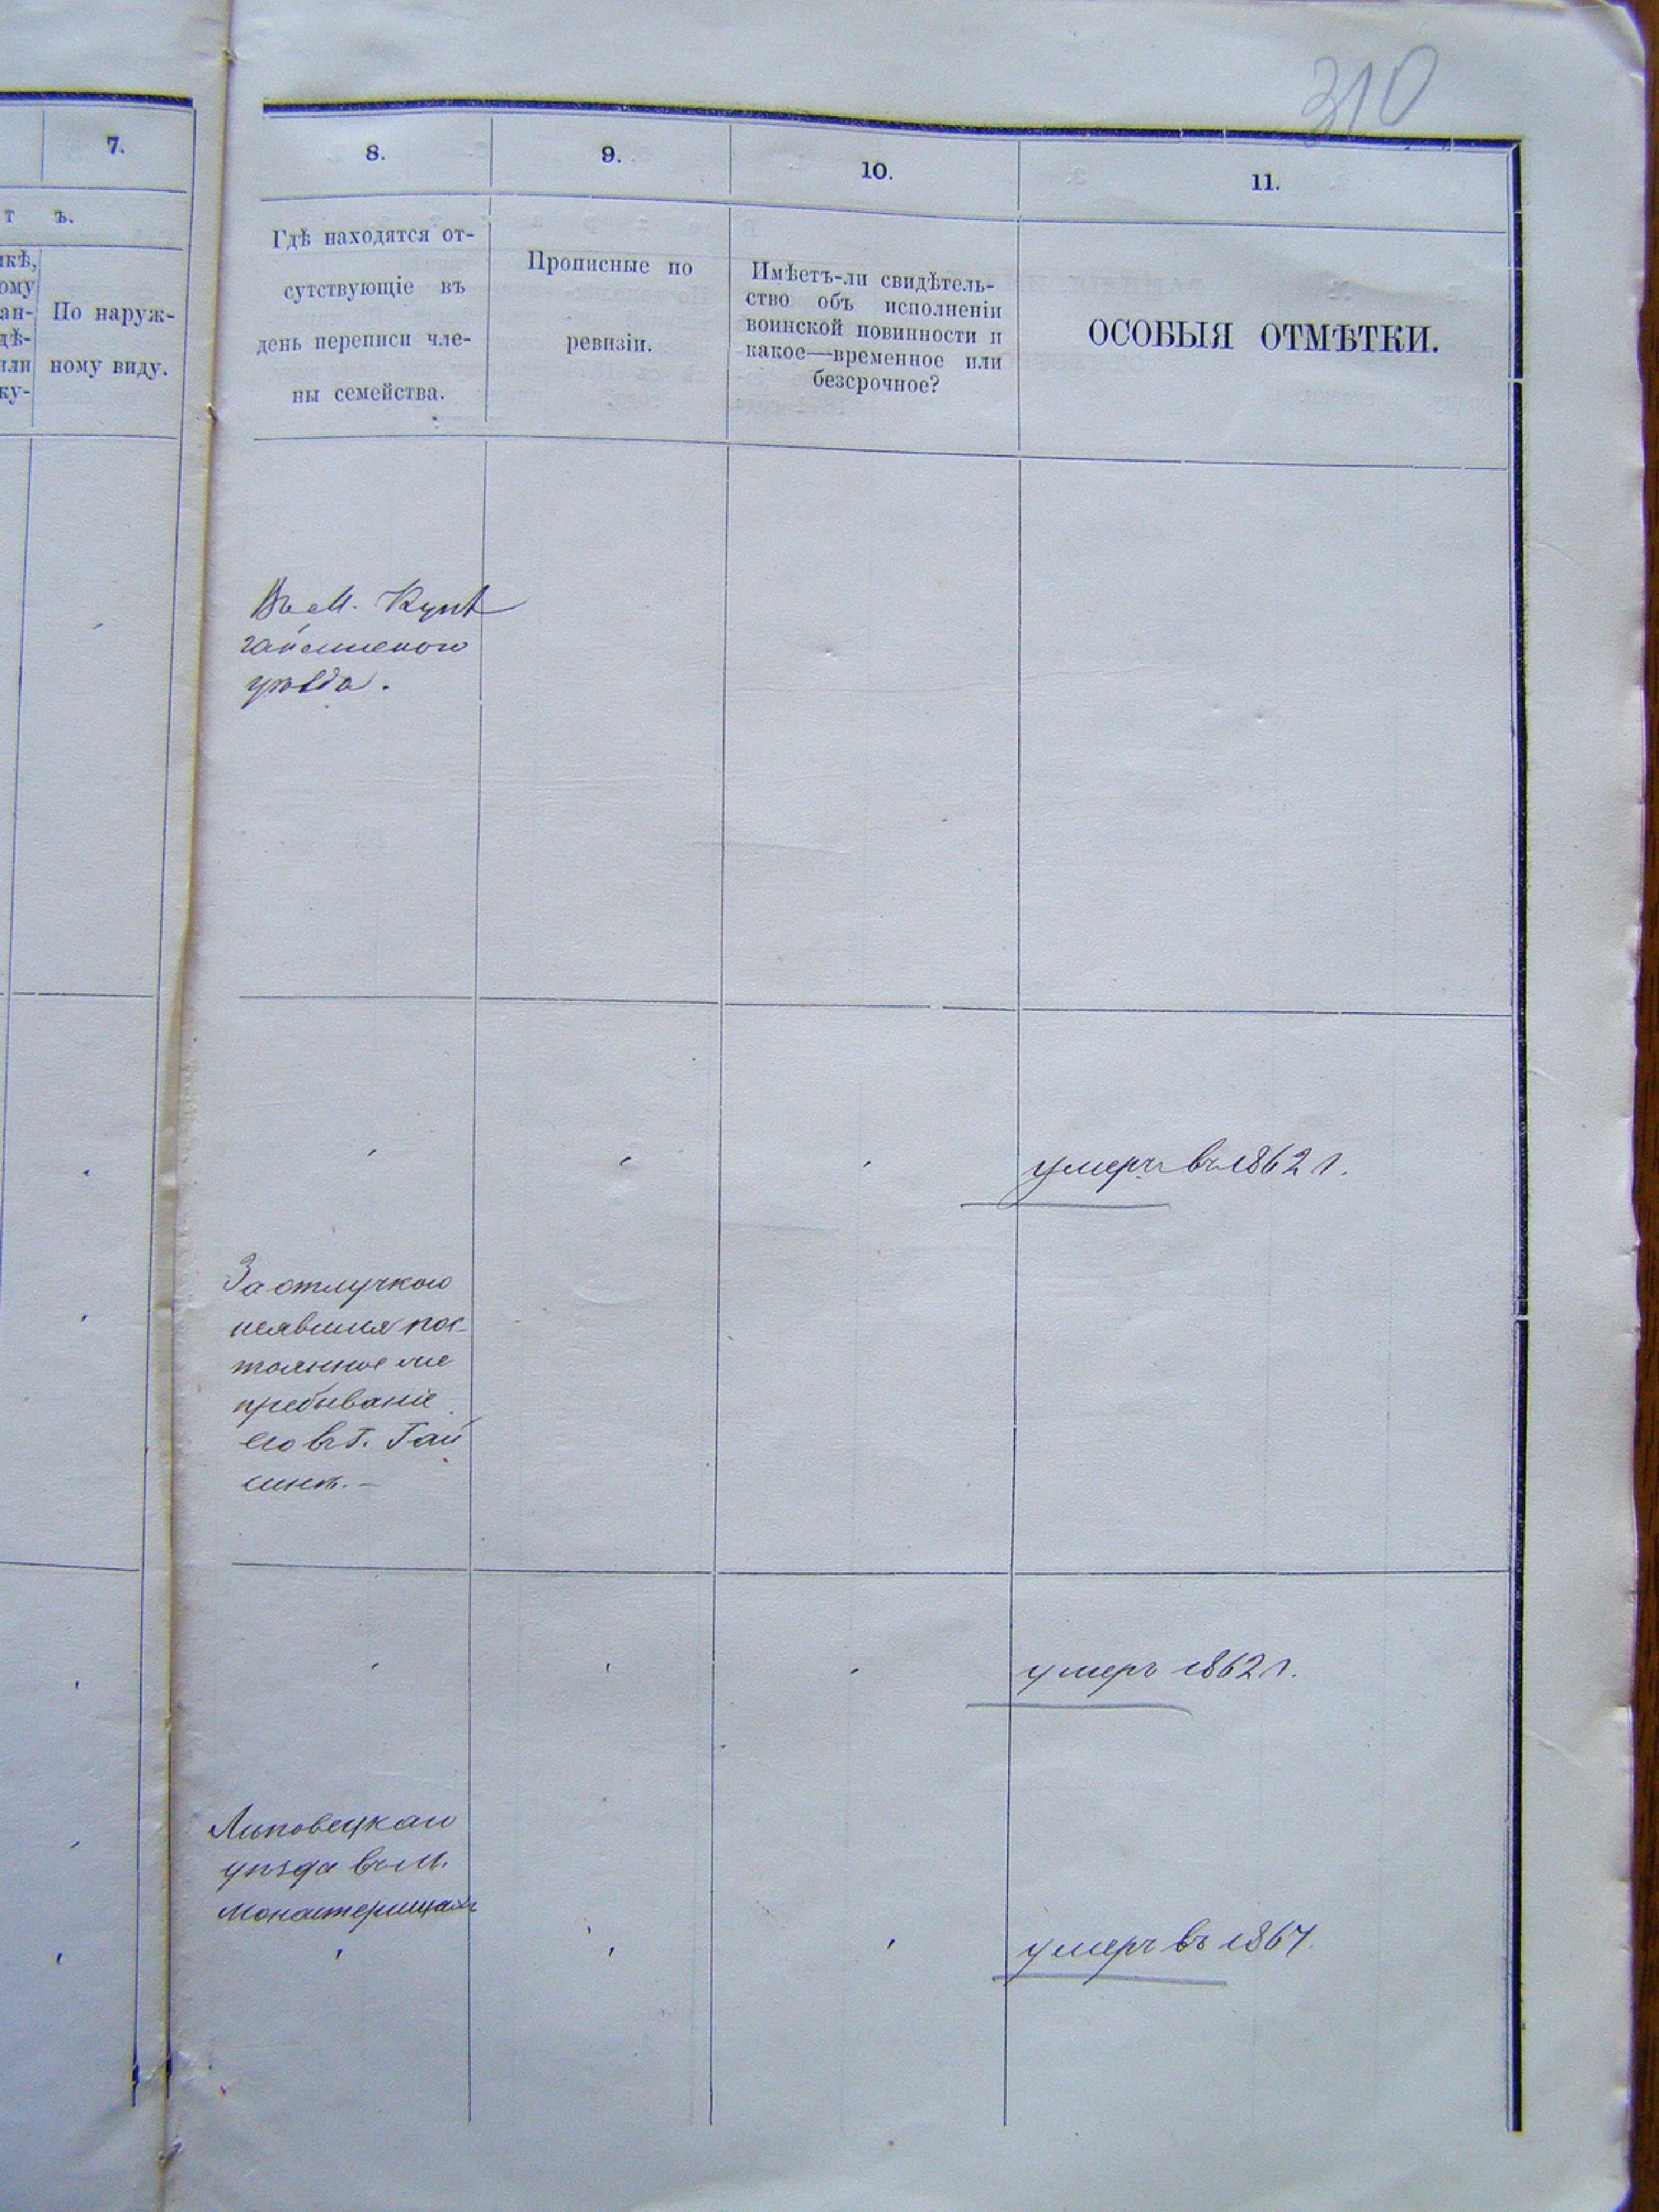 310
7.
8.
9.
10.
11.
т ъ.
икѣ,
ому
ан-
дѣ-
или
ку-
По наруж-
ному виду.
Гдѣ находятся от-
сутствующіе въ
день переписи чле-
ны семейства.
Прописные по
ревизіи.
Имѣетъ-ли свидѣтель-
ство объ исполненіи
воинской повинности и
какое—временное или
безсрочное?
ОСОБЫЯ ОТМѢТКИ.
Въ М. Куна
гайсинского
уѣзда.
умеръ въ 1862 г.
За отлучкою
неявился пос-
тоянное же
пребываніе
его въ г. Гай
синѣ.—
умеръ 1862 г.
Липовецкаго
уѣзда въ м.
Монастерищахъ
умеръ въ 1867.